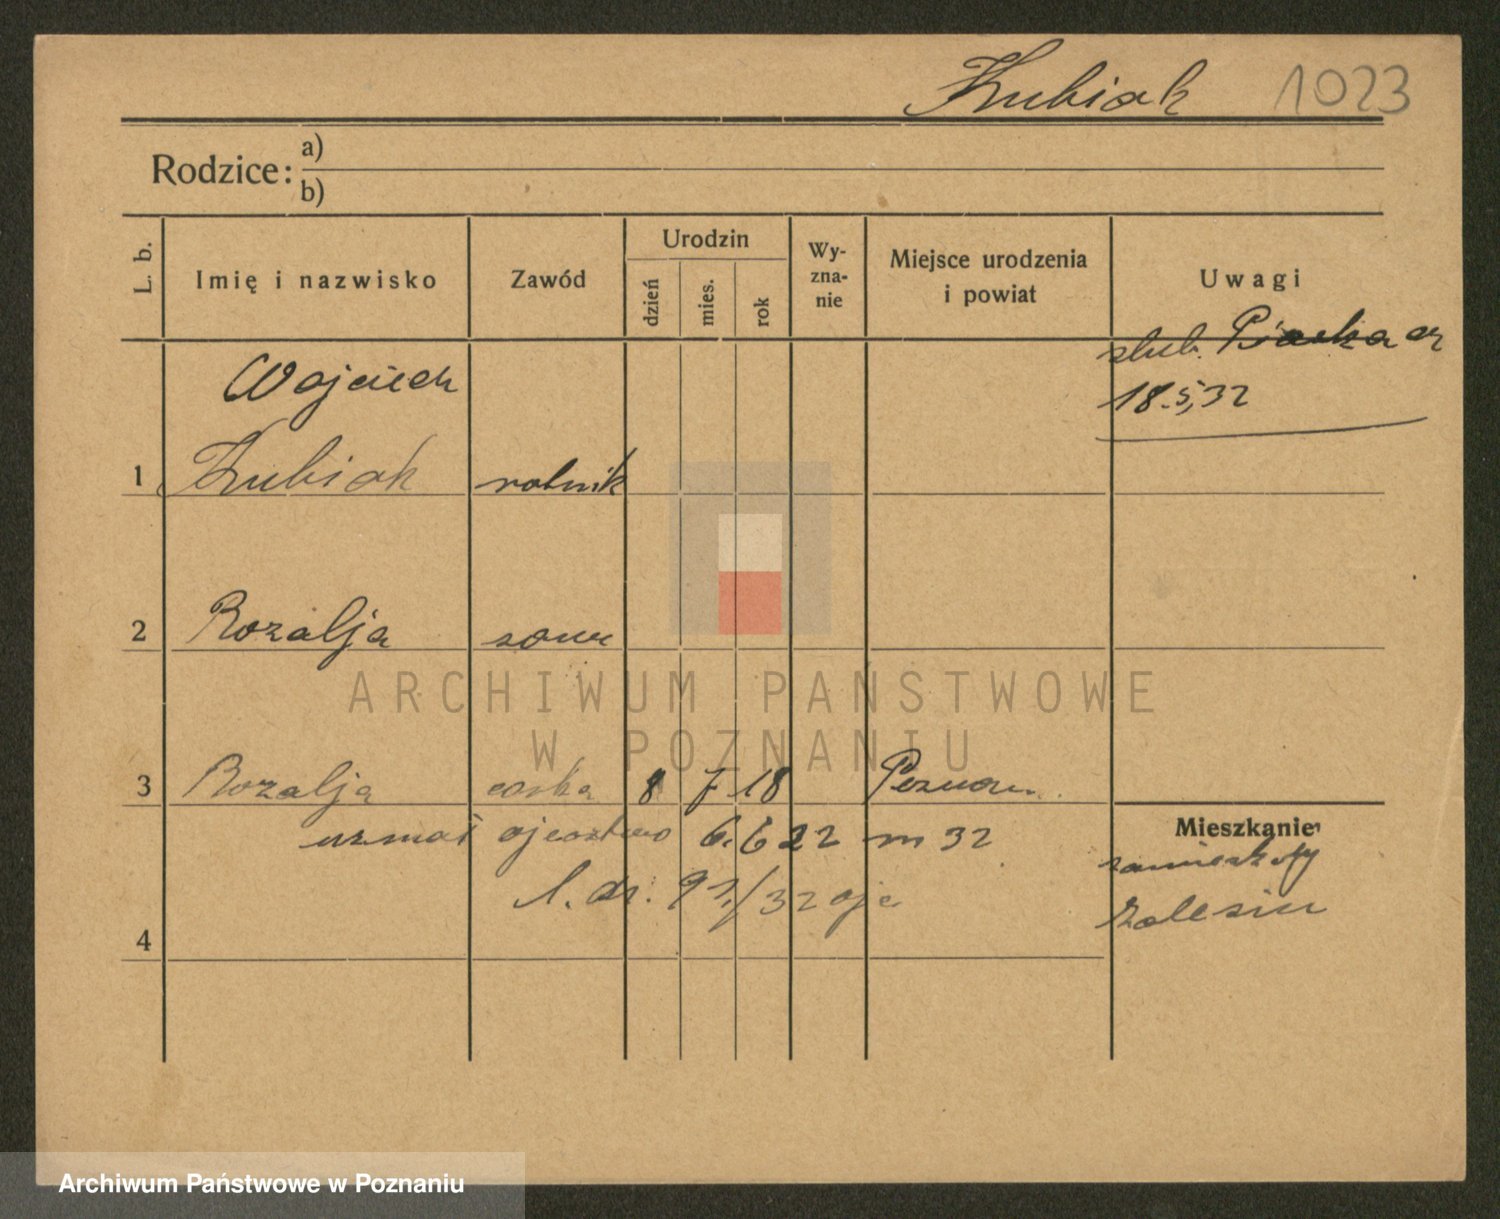 Kubiak 1023
Rodzice: a)
b)
L. b.
Imię i nazwisko
Zawód
Urodzin
dzień
mies.
rok
Wy-
zna-
nie
Miejsce urodzenia
i powiat
Uwagi
ślub. Piaska
18.5,32
Wojciech
1 Kubiak rolnik
2 Rozalja żona
ARCHIWUM PAŃSTWOWE
W POZNANIU
3 Rozalja córka 8 7 18 Poznań
uznał ojcostwo 6. 6 22 m 32
l. dz. 91/32
4
Mieszkanie
zamieszkały
Zalesiu
Archiwum Państwowe w Poznaniu